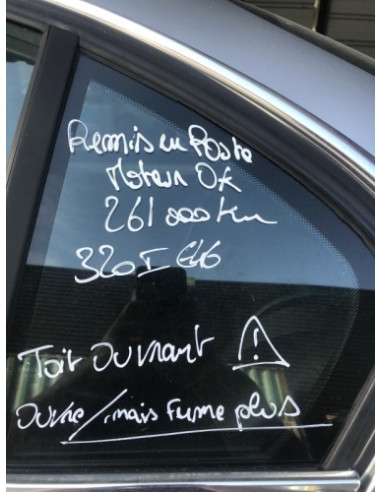 Remis en Poste
Moteur OK
261 000 Km
320I E46
Toit Ouvrant !
Ouvre / mais Fume plus